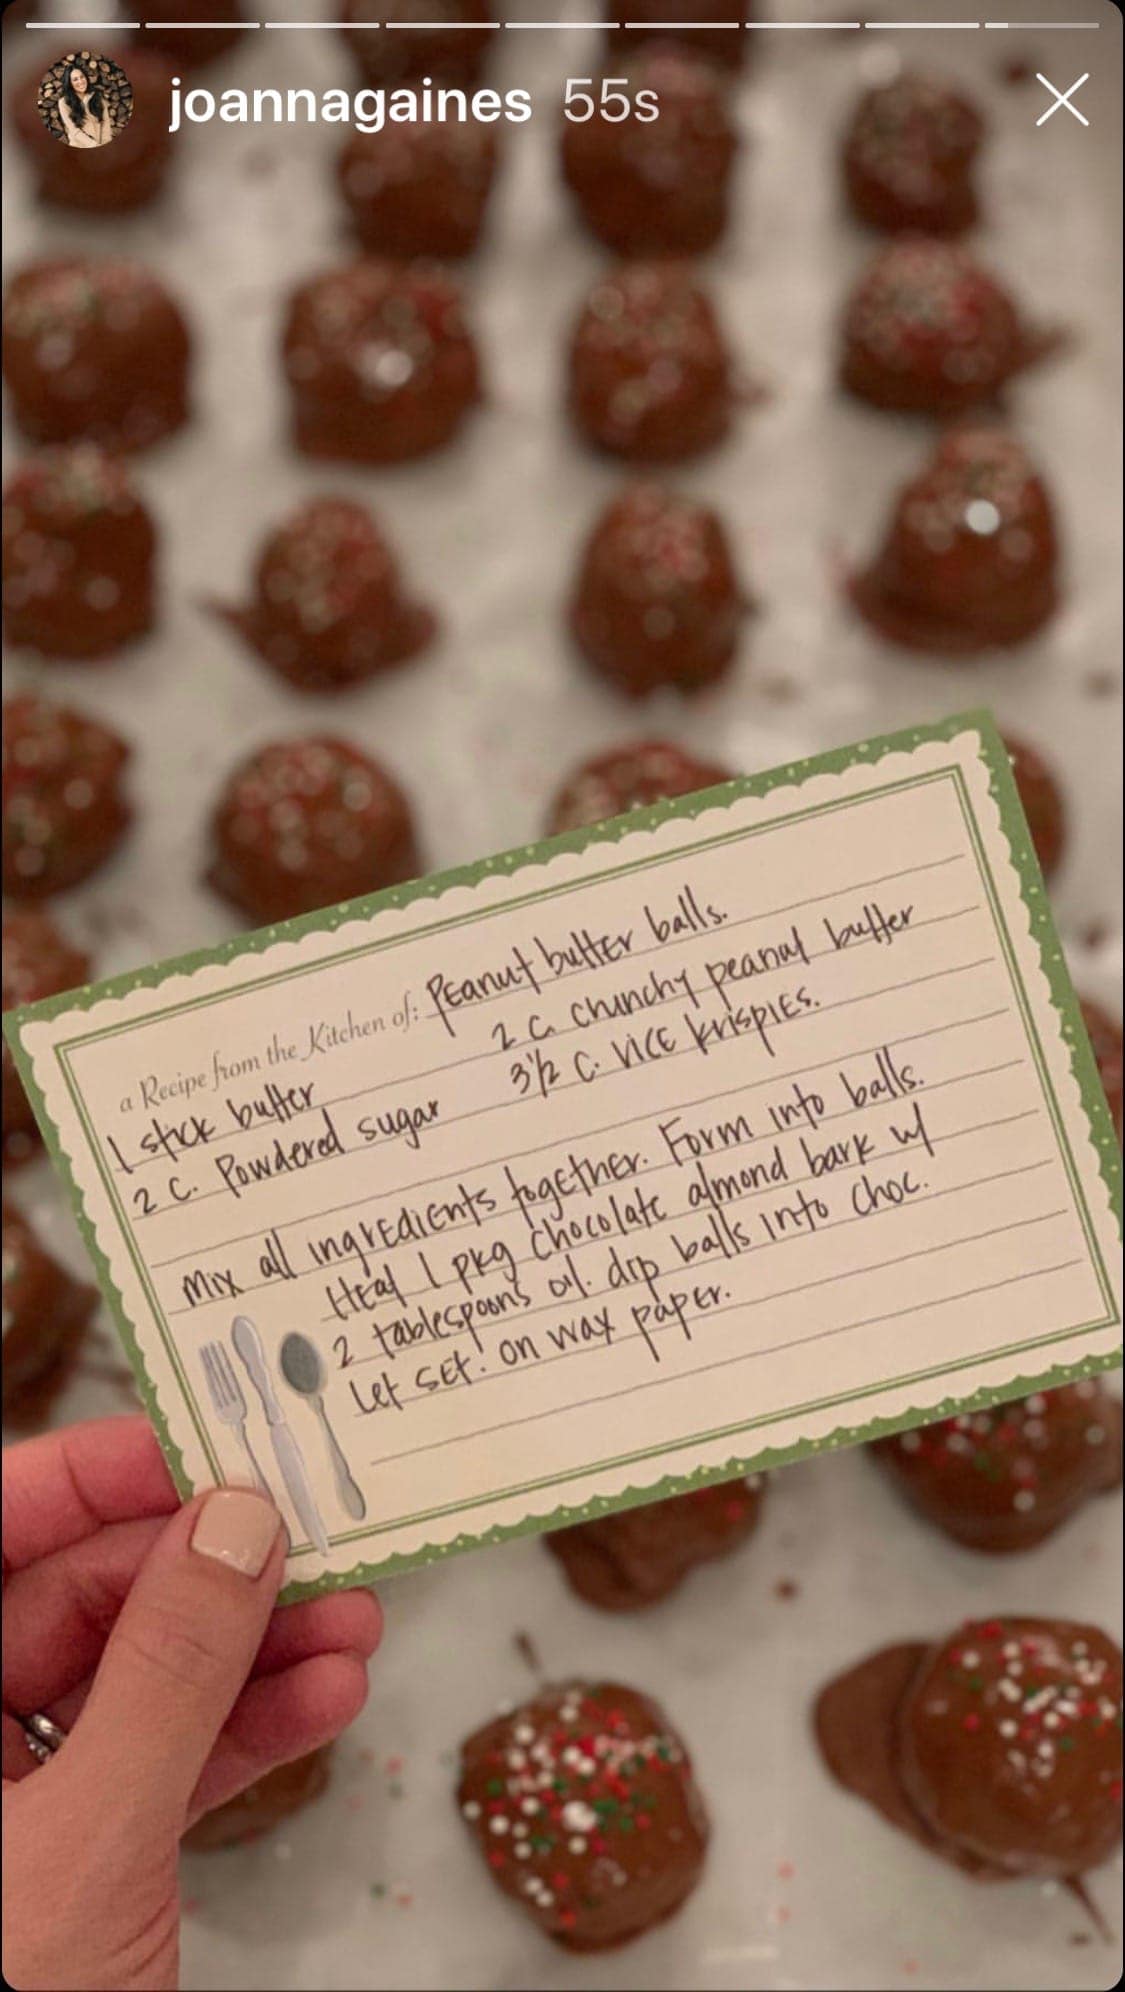 joannagaines 55s
a Recipe from the Kitchen of: Peanut butter balls.
1 stick butter 2 c. chunchy peanut butter
2 c. Powdered sugar 3 1/2 c. rice krispies.
Mix all ingredients together. Form into balls.
Heat 1 pkg chocolate almond bark w/
2 tablespoons oil. dip balls into choc.
let set! on wax paper.